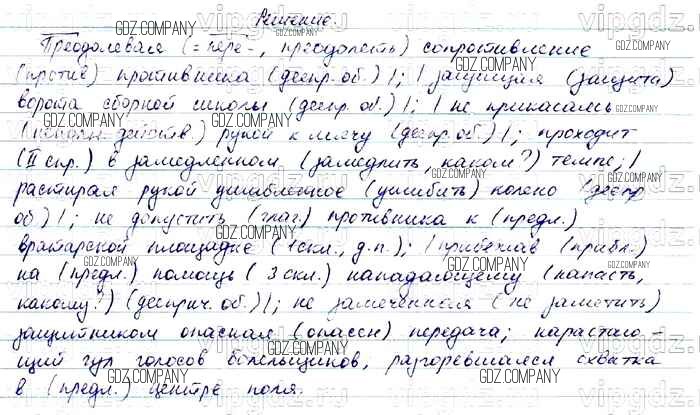 Решение.
Преодолевая (=пере-, преодолеть) сопротивление
(против) противника (деепр. об.) |; | защищая (защита)
ворота сборной школы (деепр. об.) |; | не прикасаясь
(неполн. действ.) рукой к мячу (деепр. об.) |; проходит
(II спр.) в замедленном (замедлить, каком?) темпе; |
растирая рукой ушибленное (ушибить) колено (деепр.
об.) |; не допустить (глаг.) противника к (предл.)
вратарской площадке (1 скл., д.п.); | прибежав (прибл.)
на (предл.) помощь (3 скл.) нападающему (напасть,
какому?) (дееприч. об.) |; не замеченная (не заметить)
защитником опасная (опасен) передача; нарастаю-
щий гул голосов болельщиков, разгоревшаяся схватка
в (предл.) центре поля.